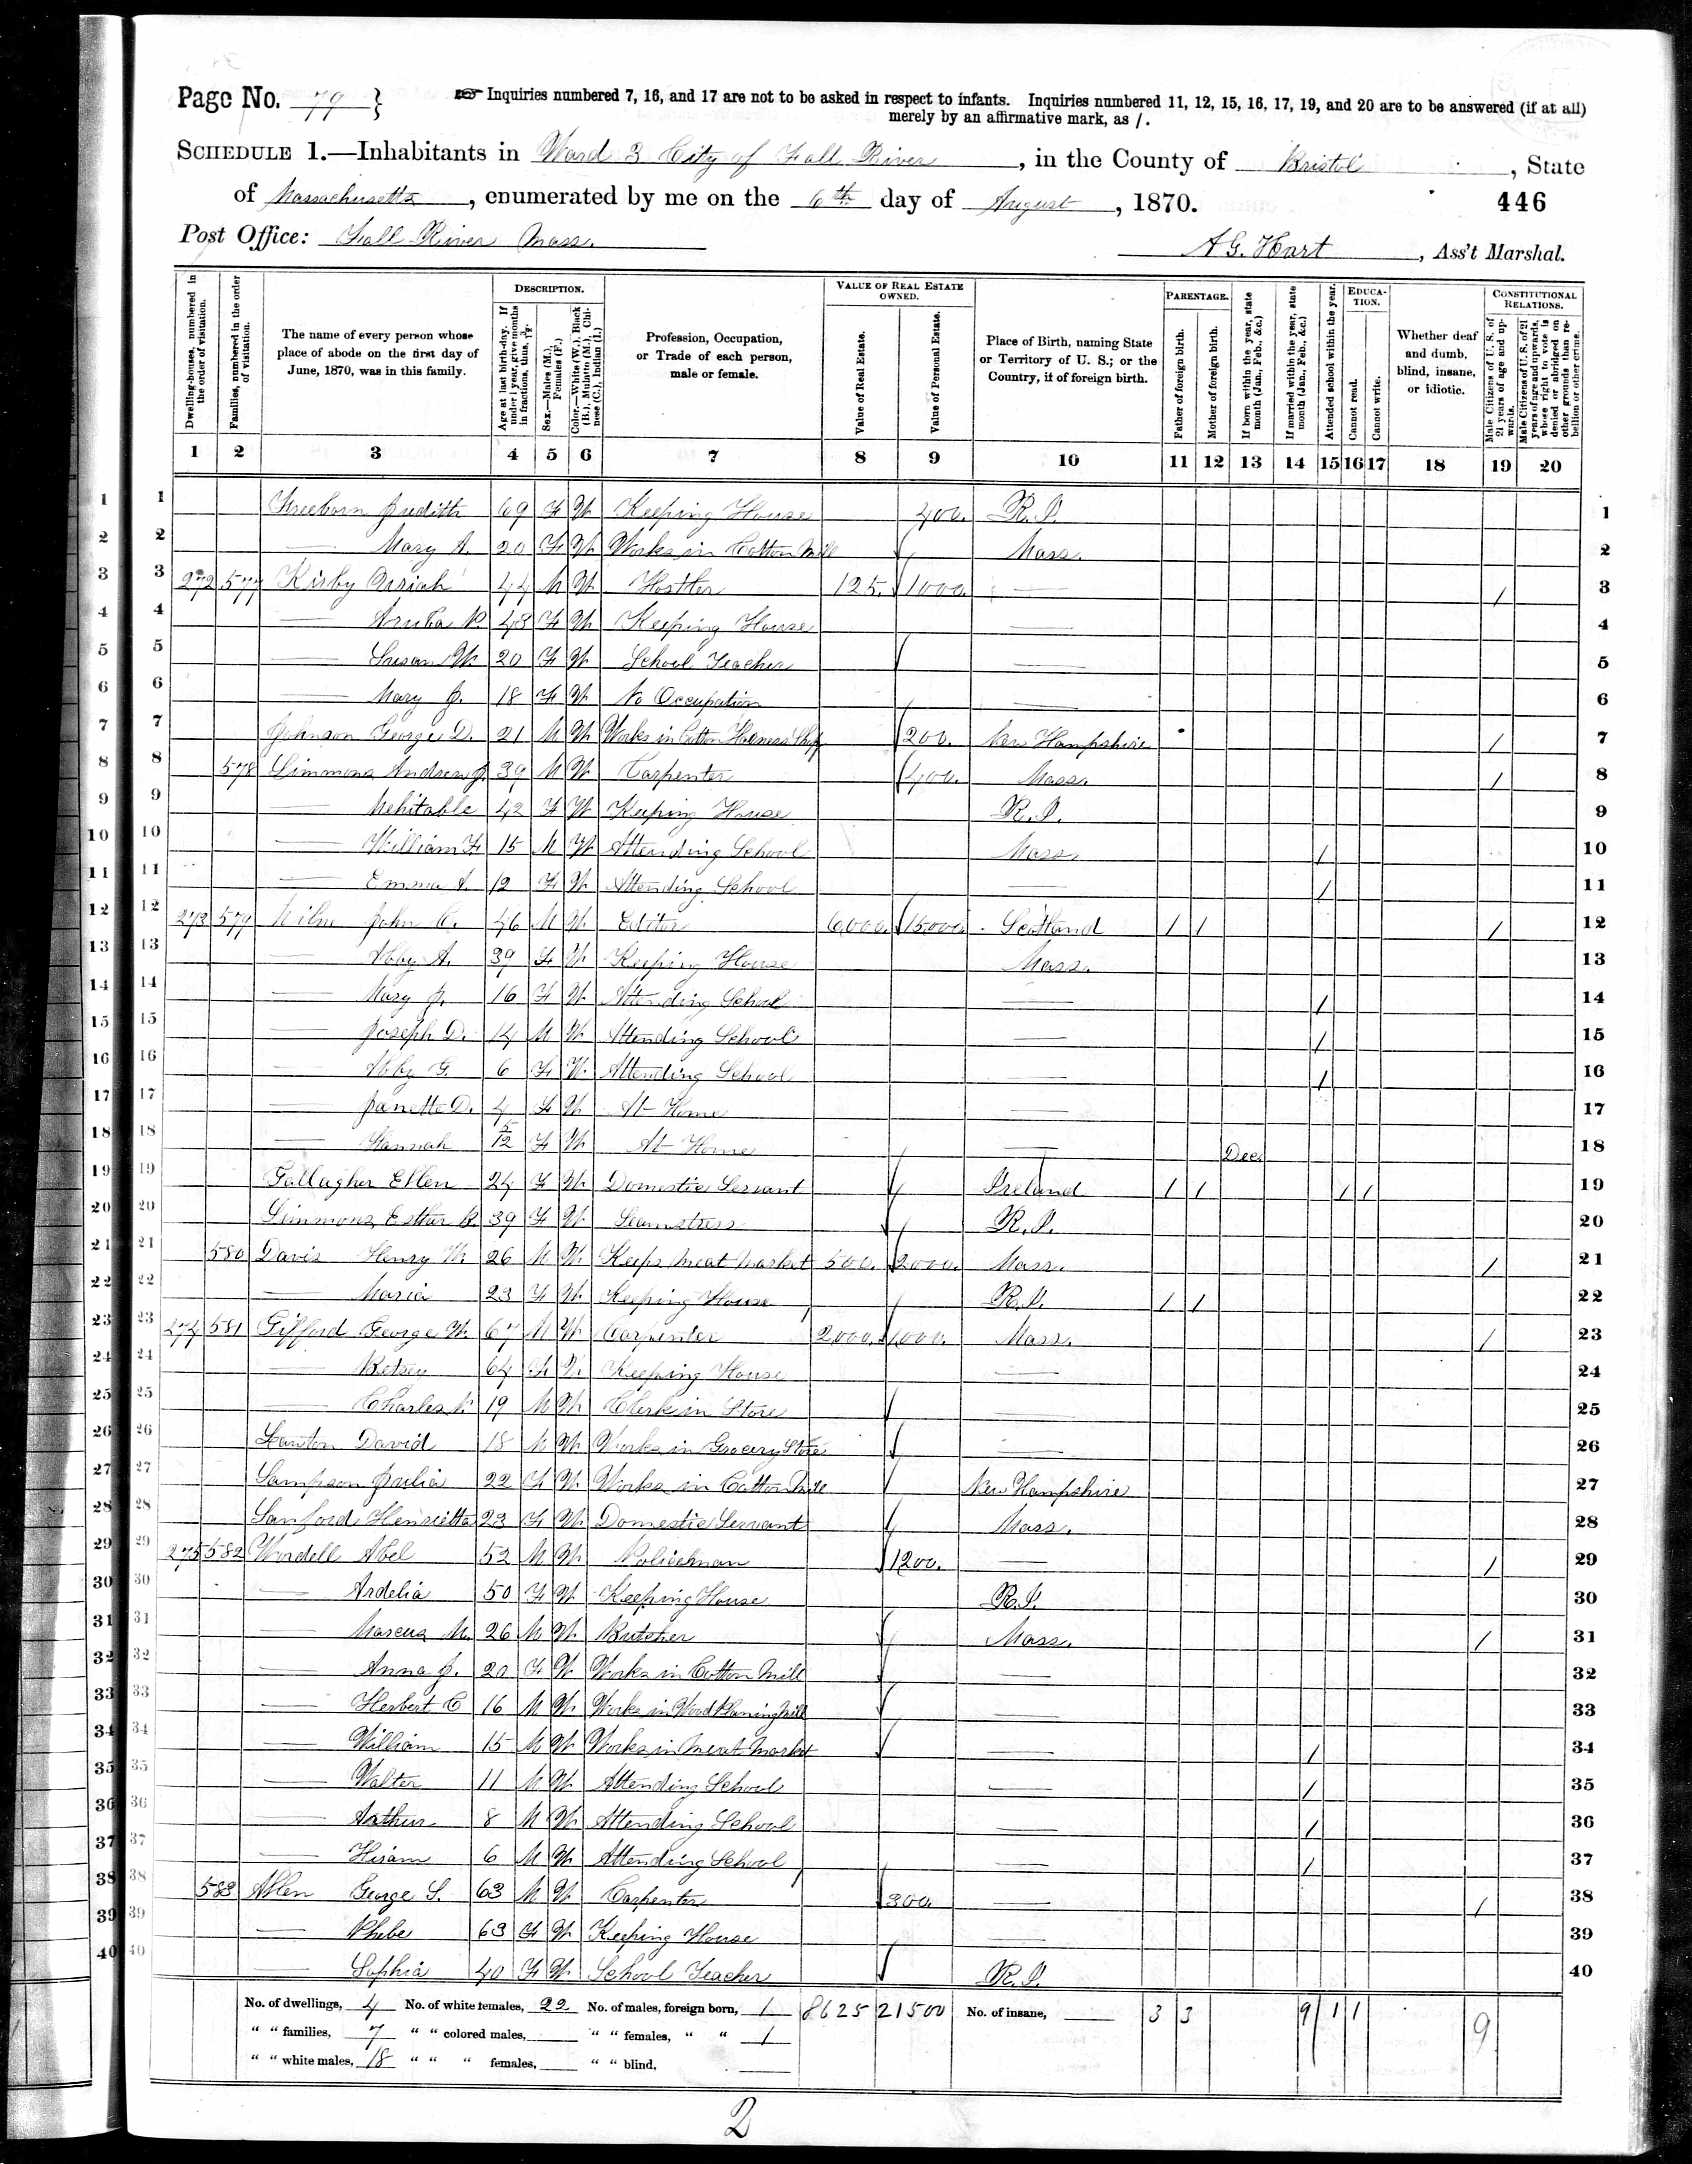 Page No. 79 }
☞ Inquiries numbered 7, 16, and 17 are not to be asked in respect to infants. Inquiries numbered 11, 12, 15, 16, 17, 19, and 20 are to be answered (if at all)
merely by an affirmative mark, as /.
SCHEDULE 1.—Inhabitants in Ward 3 City of Fall River, in the County of Bristol, State
of Massachusetts, enumerated by me on the 6th day of August, 1870. 446
Post Office: Fall River Mass.
A G. Hart, Ass't Marshal.
Dwelling-houses, numbered in the order of visitation.
Families, numbered in the order of visitation.
The name of every person whose place of abode on the first day of June, 1870, was in this family.
DESCRIPTION.
Age at last birth-day. If under 1 year, give months in fractions, thus, 3/12.
Sex.—Males (M.), Females (F.)
Color.—White (W.), Black (B.), Mulatto (M.), Chinese (C.), Indian (I.)
Profession, Occupation, or Trade of each person, male or female.
VALUE OF REAL ESTATE OWNED.
Value of Real Estate.
Value of Personal Estate.
Place of Birth, naming State or Territory of U. S.; or the Country, if of foreign birth.
PARENTAGE.
Father of foreign birth.
Mother of foreign birth.
If born within the year, state month (Jan., Feb., &c.)
If married within the year, state month (Jan., Feb., &c.)
Attended school within the year.
EDUCATION.
Cannot read.
Cannot write.
Whether deaf and dumb, blind, insane, or idiotic.
CONSTITUTIONAL RELATIONS.
Male Citizens of U. S. of 21 years of age and upwards.
Male Citizens of U. S. of 21 years of age and upwards, whose right to vote is denied or abridged on other grounds than rebellion or other crime.
1 2 3 4 5 6 7 8 9 10 11 12 13 14 15 16 17 18 19 20
1 Freeborn Judith 69 F W Keeping House 400. R.I. 1
2 — Mary A. 20 F W Works in Cotton Mill Mass. 2
3 272 577 Kirby 44 M W Hostler 125. 1000. — / 3
4 — 48 F W Keeping House — 4
5 — Susan W 20 F W School Teacher — 5
6 — Mary J. 18 F W No Occupation — 6
7 Johnson George D. 21 M W Works in Cotton Harness Shop 200. New Hampshire / 7
8 578 Simmons Andrew J. 39 M W Carpenter 400. Mass. / 8
9 — Mehitable 42 F W Keeping House R.I. 9
10 — William F 15 M W Attending School Mass. / 10
11 — Emma A. 12 F W Attending School — / 11
12 273 579 Milne John C. 46 M W Editor 6000. 15000. Scotland / / / 12
13 — Abby A. 39 F W Keeping House Mass. 13
14 — Mary J. 16 F W Attending School — / 14
15 — Joseph D. 14 M W Attending School — / 15
16 — Abby G. 6 F W. Attending School — / 16
17 — Janette D. 4 F W At Home — 17
18 — Hannah 5/12 F W At Home — Dec. 18
19 Gallagher Ellen 24 F W Domestic Servant Ireland / / / / 19
20 Simmons Esther R 39 F W Seamstress R.I. 20
21 580 Davis Henry W. 26 M W Keeps Meat Market 500. 2000. Mass. / 21
22 — Maria 23 F W Keeping House R.I. / / 22
23 274 581 Gifford George W 67 M W Carpenter 2000. 1000. Mass. / 23
24 — Betsey 64 F W. Keeping House — 24
25 — Charles 19 M W Clerk in Store — 25
26 Lawton David 18 M W Works in Grocery Store — 26
27 Sampson Julia 22 F W Works in Cotton Mill New Hampshire 27
28 Sanford Henrietta 23 F W Domestic Servant Mass. 28
29 275 582 Wordell Abel 52 M W Policeman 1200. — / 29
30 — Ardelia 50 F W Keeping House R.I. 30
31 — Marcus M. 26 M W Butcher Mass. / 31
32 — Anna J. 20 F W Works in Cotton Mill — 32
33 — Herbert C 16 M W Works in Wood Planing Mill — 33
34 — William 15 M W Works in Meat Market — / 34
35 — Walter 11 M W Attending School — / 35
36 — Arthur 8 M W Attending School — / 36
37 — Hiram 6 M W Attending School — / 37
38 583 Allen George S. 63 M W Carpenter 300. — / 38
39 — Phebe 63 F W Keeping House — 39
40 — Sophia 40 F W School Teacher R.I. 40
No. of dwellings, 4 No. of white females, 22 No. of males, foreign born, 1 8625 21500 No. of insane, 3 3 9 1 1 9
" " families, 7 " " colored males, " " females, " " 1
" " white males, 18 " " " females, " " blind,
2